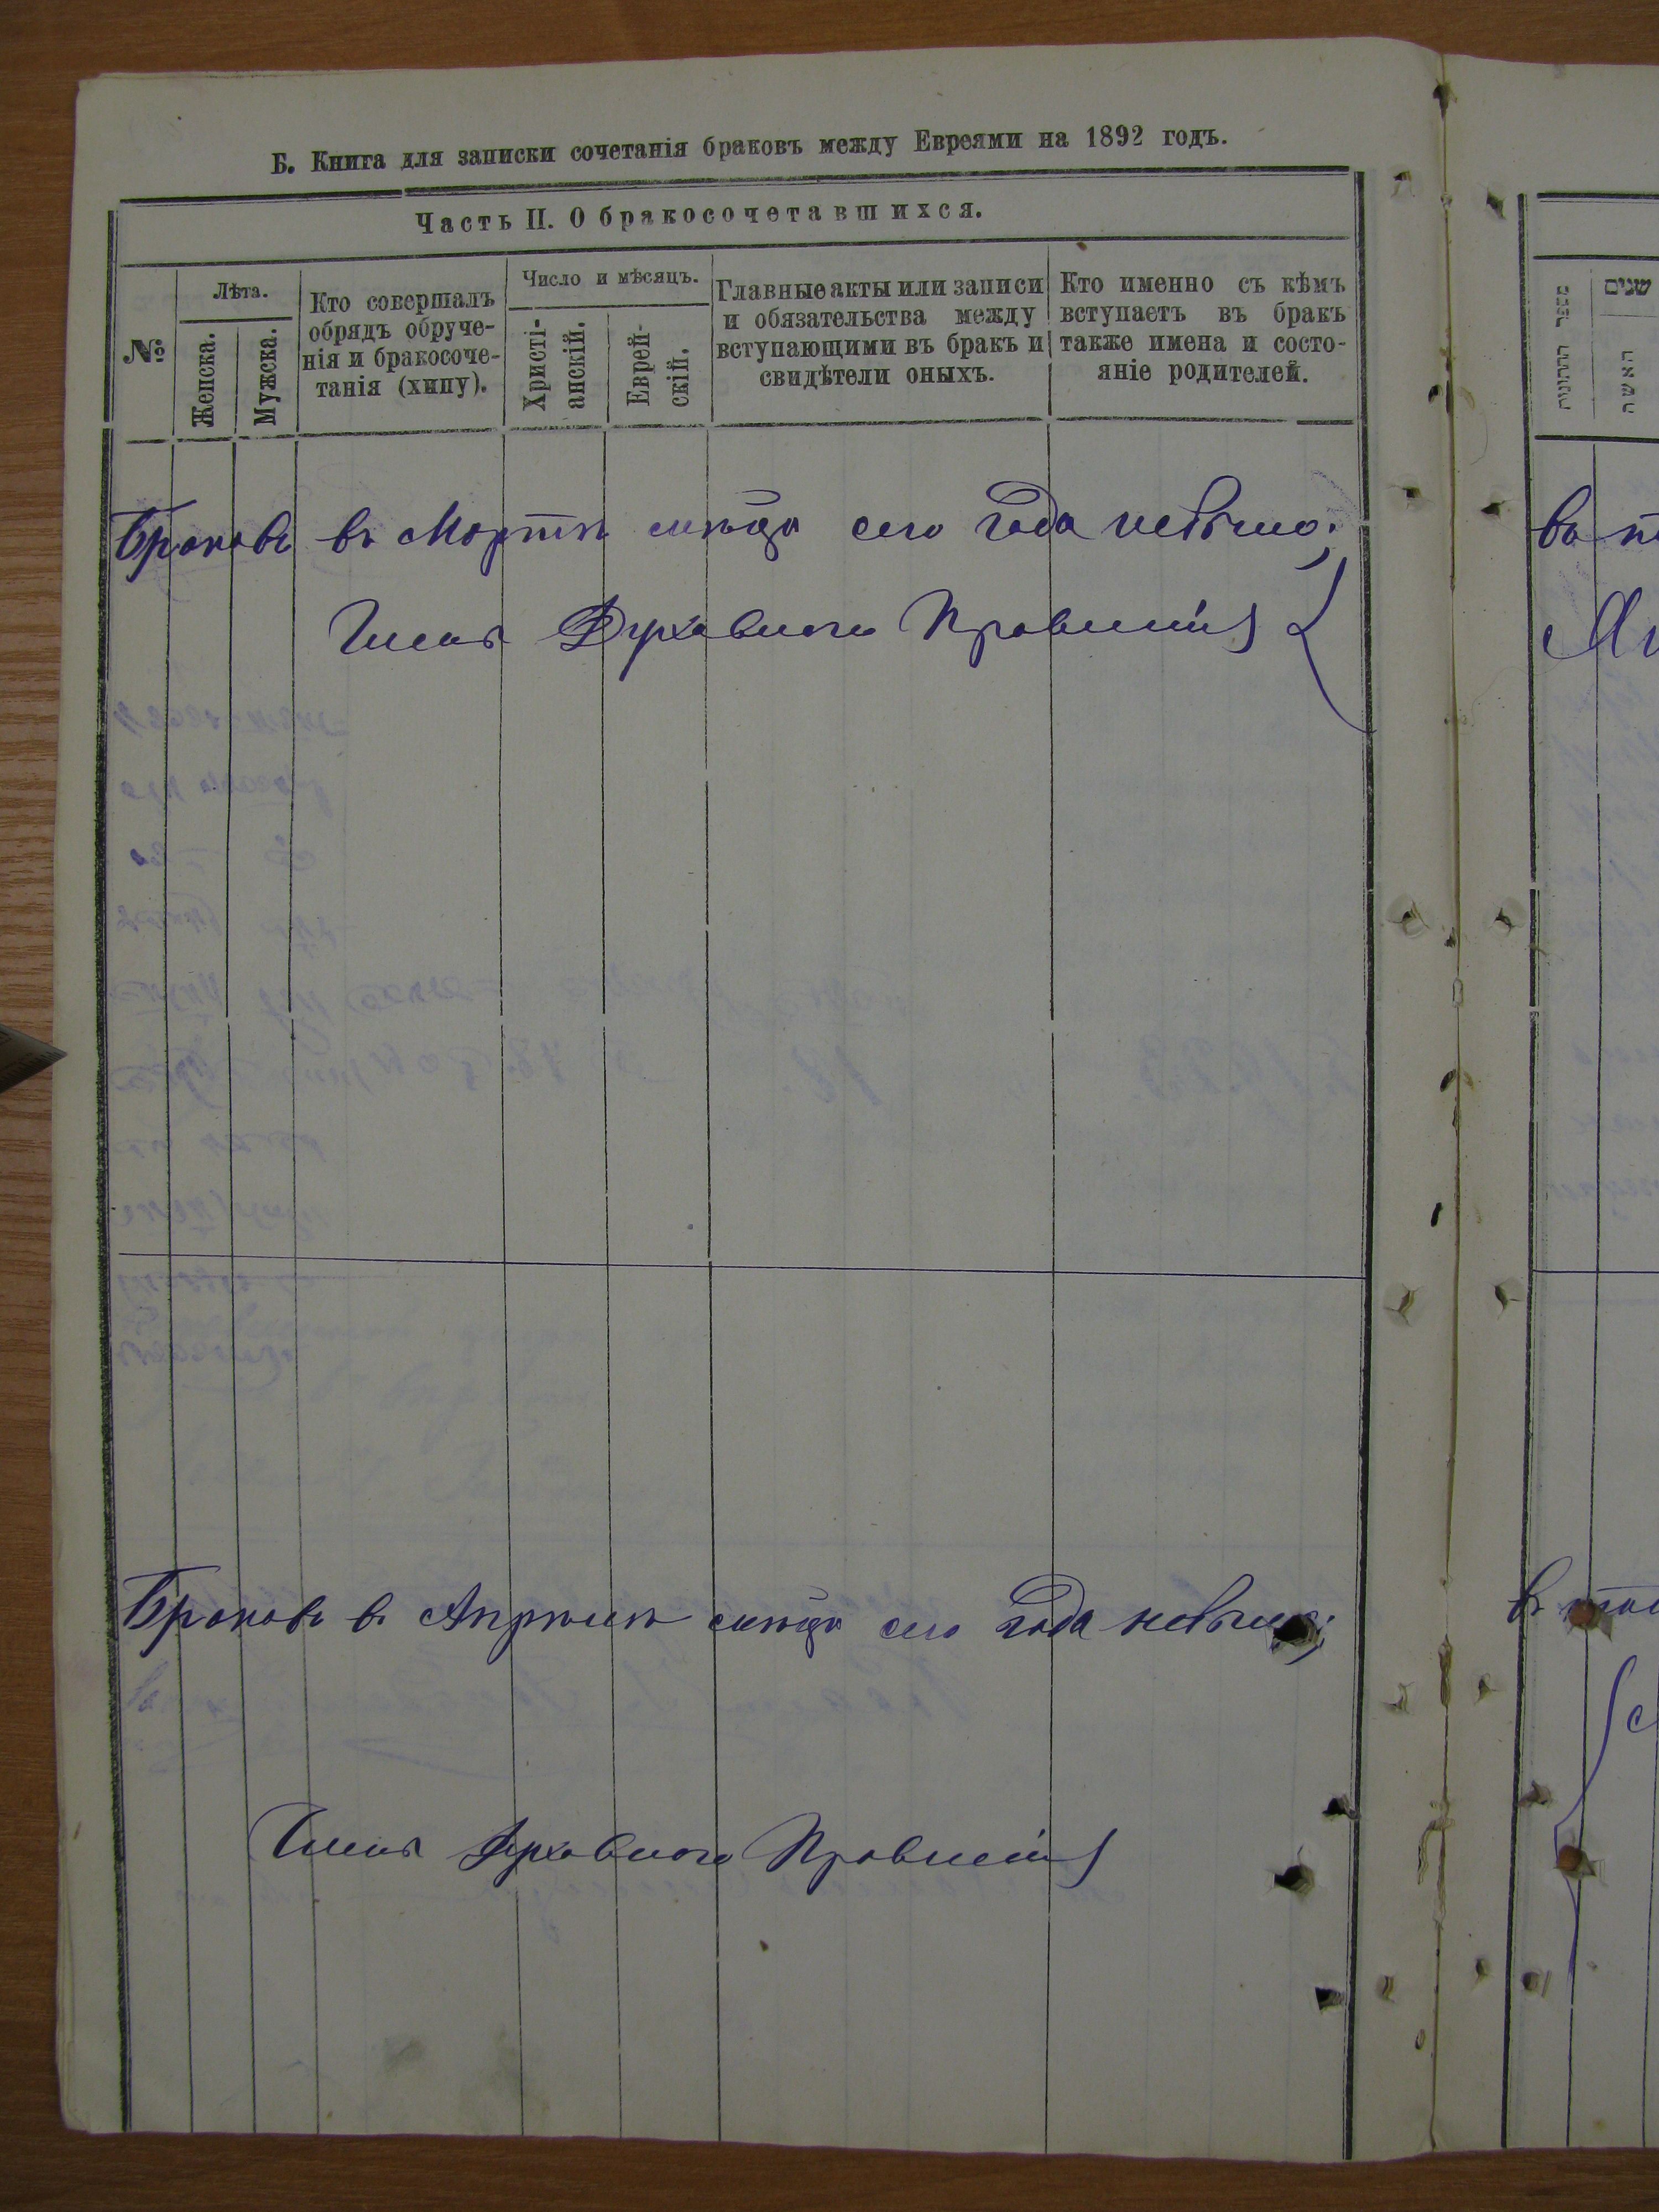 Б. Книга для записки сочетанія браковъ между Евреями на 1892 годъ.
Часть II. О бракосочетавшихся.
№
Лѣта.
Женска.
Мужска.
Кто совершалъ
обрядъ обруче-
нія и бракосоче-
танія (хипу).
Число и мѣсяцъ.
Христі-
анскій.
Еврей-
скій.
Главные акты или записи
и обязательства между
вступающими въ бракъ и
свидѣтели оныхъ.
Кто именно съ кѣмъ
вступаетъ въ бракъ
также имена и состо-
яніе родителей.
Браковъ въ Мартѣ мѣсяцѣ сего года небыло;
Члены Духовного Правленія
Браковъ въ Апрѣлѣ мѣсяцѣ сего года небыло;
Члены Духовного Правленія
מספר החתונות
שנים
האשה